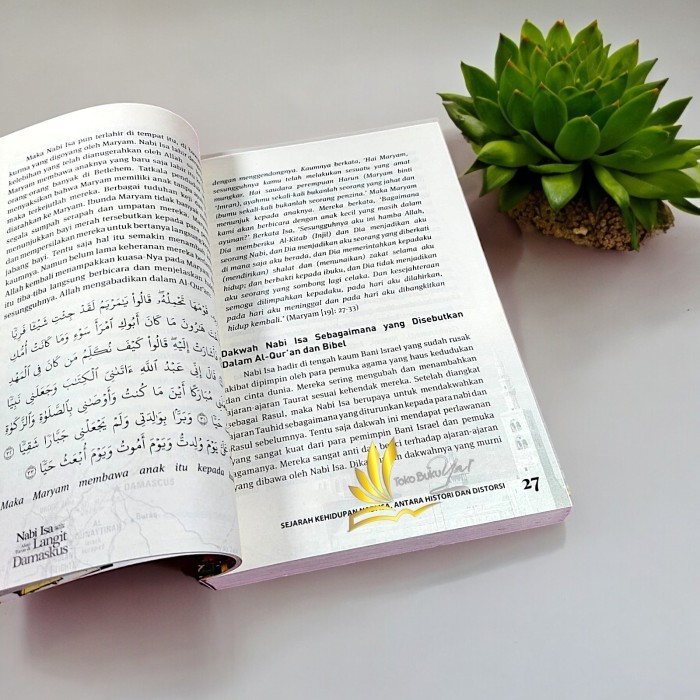 Maka Nabi Isa pun terlahir di tempat itu, di
kurma yang digoyang oleh Maryam. Nabi Isa lahir
kelebihan yang telah dianugerahkan oleh Allah,
Maryam membawa anaknya yang baru saja lahir
orang-orang banyak di Betlehem. Tatkala
menyaksikan bahwa Maryam memiliki anak tanpa
maka terkejutlah mereka. Berbagai tuduhan keji
diarahkan ke Maryam. Ibunda Maryam tidak
segala sumpah serapah dan umpatan mereka.
menunjukkan bayi merah tersebut kepada para
dan mempersilakan mereka untuk bertanya langsung
jabang bayi. Tentu saja hal itu semakin menambah
kaumnya. Namun belum lama keheranan mereka
Allah kembali menampakkan kuasa-Nya pada Maryam
itu tiba-tiba langsung berbicara dan menjelaskan
sesungguhnya. Allah mengabadikan dalam Al-Qur'an
قَوْمَهَا تَحْمِلُهُۥ قَالُوا۟ يَٰمَرْيَمُ لَقَدْ جِئْتِ شَيْـًٔا فَرِيًّا
هَٰرُونَ مَا كَانَ أَبُوكِ ٱمْرَأَ سَوْءٍ وَمَا كَانَتْ أُمُّكِ
فَأَشَارَتْ إِلَيْهِ قَالُوا۟ كَيْفَ نُكَلِّمُ مَن كَانَ فِى ٱلْمَهْدِ
قَالَ إِنِّى عَبْدُ ٱللَّهِ ءَاتَىٰنِىَ ٱلْكِتَٰبَ وَجَعَلَنِى نَبِيًّا
مُبَارَكًا أَيْنَ مَا كُنتُ وَأَوْصَٰنِى بِٱلصَّلَوٰةِ وَٱلزَّكَوٰةِ
حَيًّا ٣١ وَبَرًّۢا بِوَٰلِدَتِى وَلَمْ يَجْعَلْنِى جَبَّارًا شَقِيًّا ٣٢
يَوْمَ وُلِدتُّ وَيَوْمَ أَمُوتُ وَيَوْمَ أُبْعَثُ حَيًّا ٣٣
Maka Maryam membawa anak itu kepada
DAMASCUS
Nabi Isa
Langit
Damaskus
dengan menggendongnya. Kaumnya berkata, 'Hai Maryam,
sesungguhnya kamu telah melakukan sesuatu yang amat
mungkar. Hai saudara perempuan Harun, (Maryam binti
'Imran), ayahmu sekali-kali bukanlah seorang yang jahat dan
ibumu sekali-kali bukanlah seorang penzina.' Maka Maryam
menunjuk kepada anaknya. Mereka berkata, 'Bagaimana
kami akan berbicara dengan anak kecil yang masih dalam
ayunan?' Berkata Isa, 'Sesungguhnya aku ini hamba Allah,
Dia memberiku Al-Kitab (Injil) dan Dia menjadikan aku
seorang Nabi, dan Dia menjadikan aku seorang yang diberkati
di mana saja aku berada, dan Dia memerintahkan kepadaku
(mendirikan) shalat dan (menunaikan) zakat selama aku
hidup; dan berbakti kepada ibuku, dan Dia tidak menjadikan
aku seorang yang sombong lagi celaka. Dan kesejahteraan
semoga dilimpahkan kepadaku, pada hari aku dilahirkan,
pada hari aku meninggal dan pada hari aku dibangkitkan
hidup kembali.' (Maryam [19]: 27-33)
Dakwah Nabi Isa Sebagaimana yang Disebutkan
Dalam Al-Qur'an dan Bibel
Nabi Isa hadir di tengah kaum Bani Israel yang sudah rusak
akibat dipimpin oleh para pemuka agama yang haus kedudukan
dan cinta dunia. Mereka sering mengubah dan menambahkan
ajaran-ajaran Taurat sesuai kehendak mereka. Setelah diangkat
sebagai Rasul, maka Nabi Isa berupaya untuk mendakwahkan
ajaran Tauhid sebagaimana yang diturunkan kepada para nabi dan
Rasul sebelumnya. Tentu saja dakwah ini mendapat perlawanan
yang sangat kuat dari para pemimpin Bani Israel dan pemuka
agamanya. Mereka sangat anti dan terhadap ajaran-ajaran
yang dibawa oleh Nabi Isa. dakwahnya yang murni
Toko Buku Yat
SEJARAH KEHIDUPAN NABI ISA, ANTARA HISTORI DAN DISTORSI
27